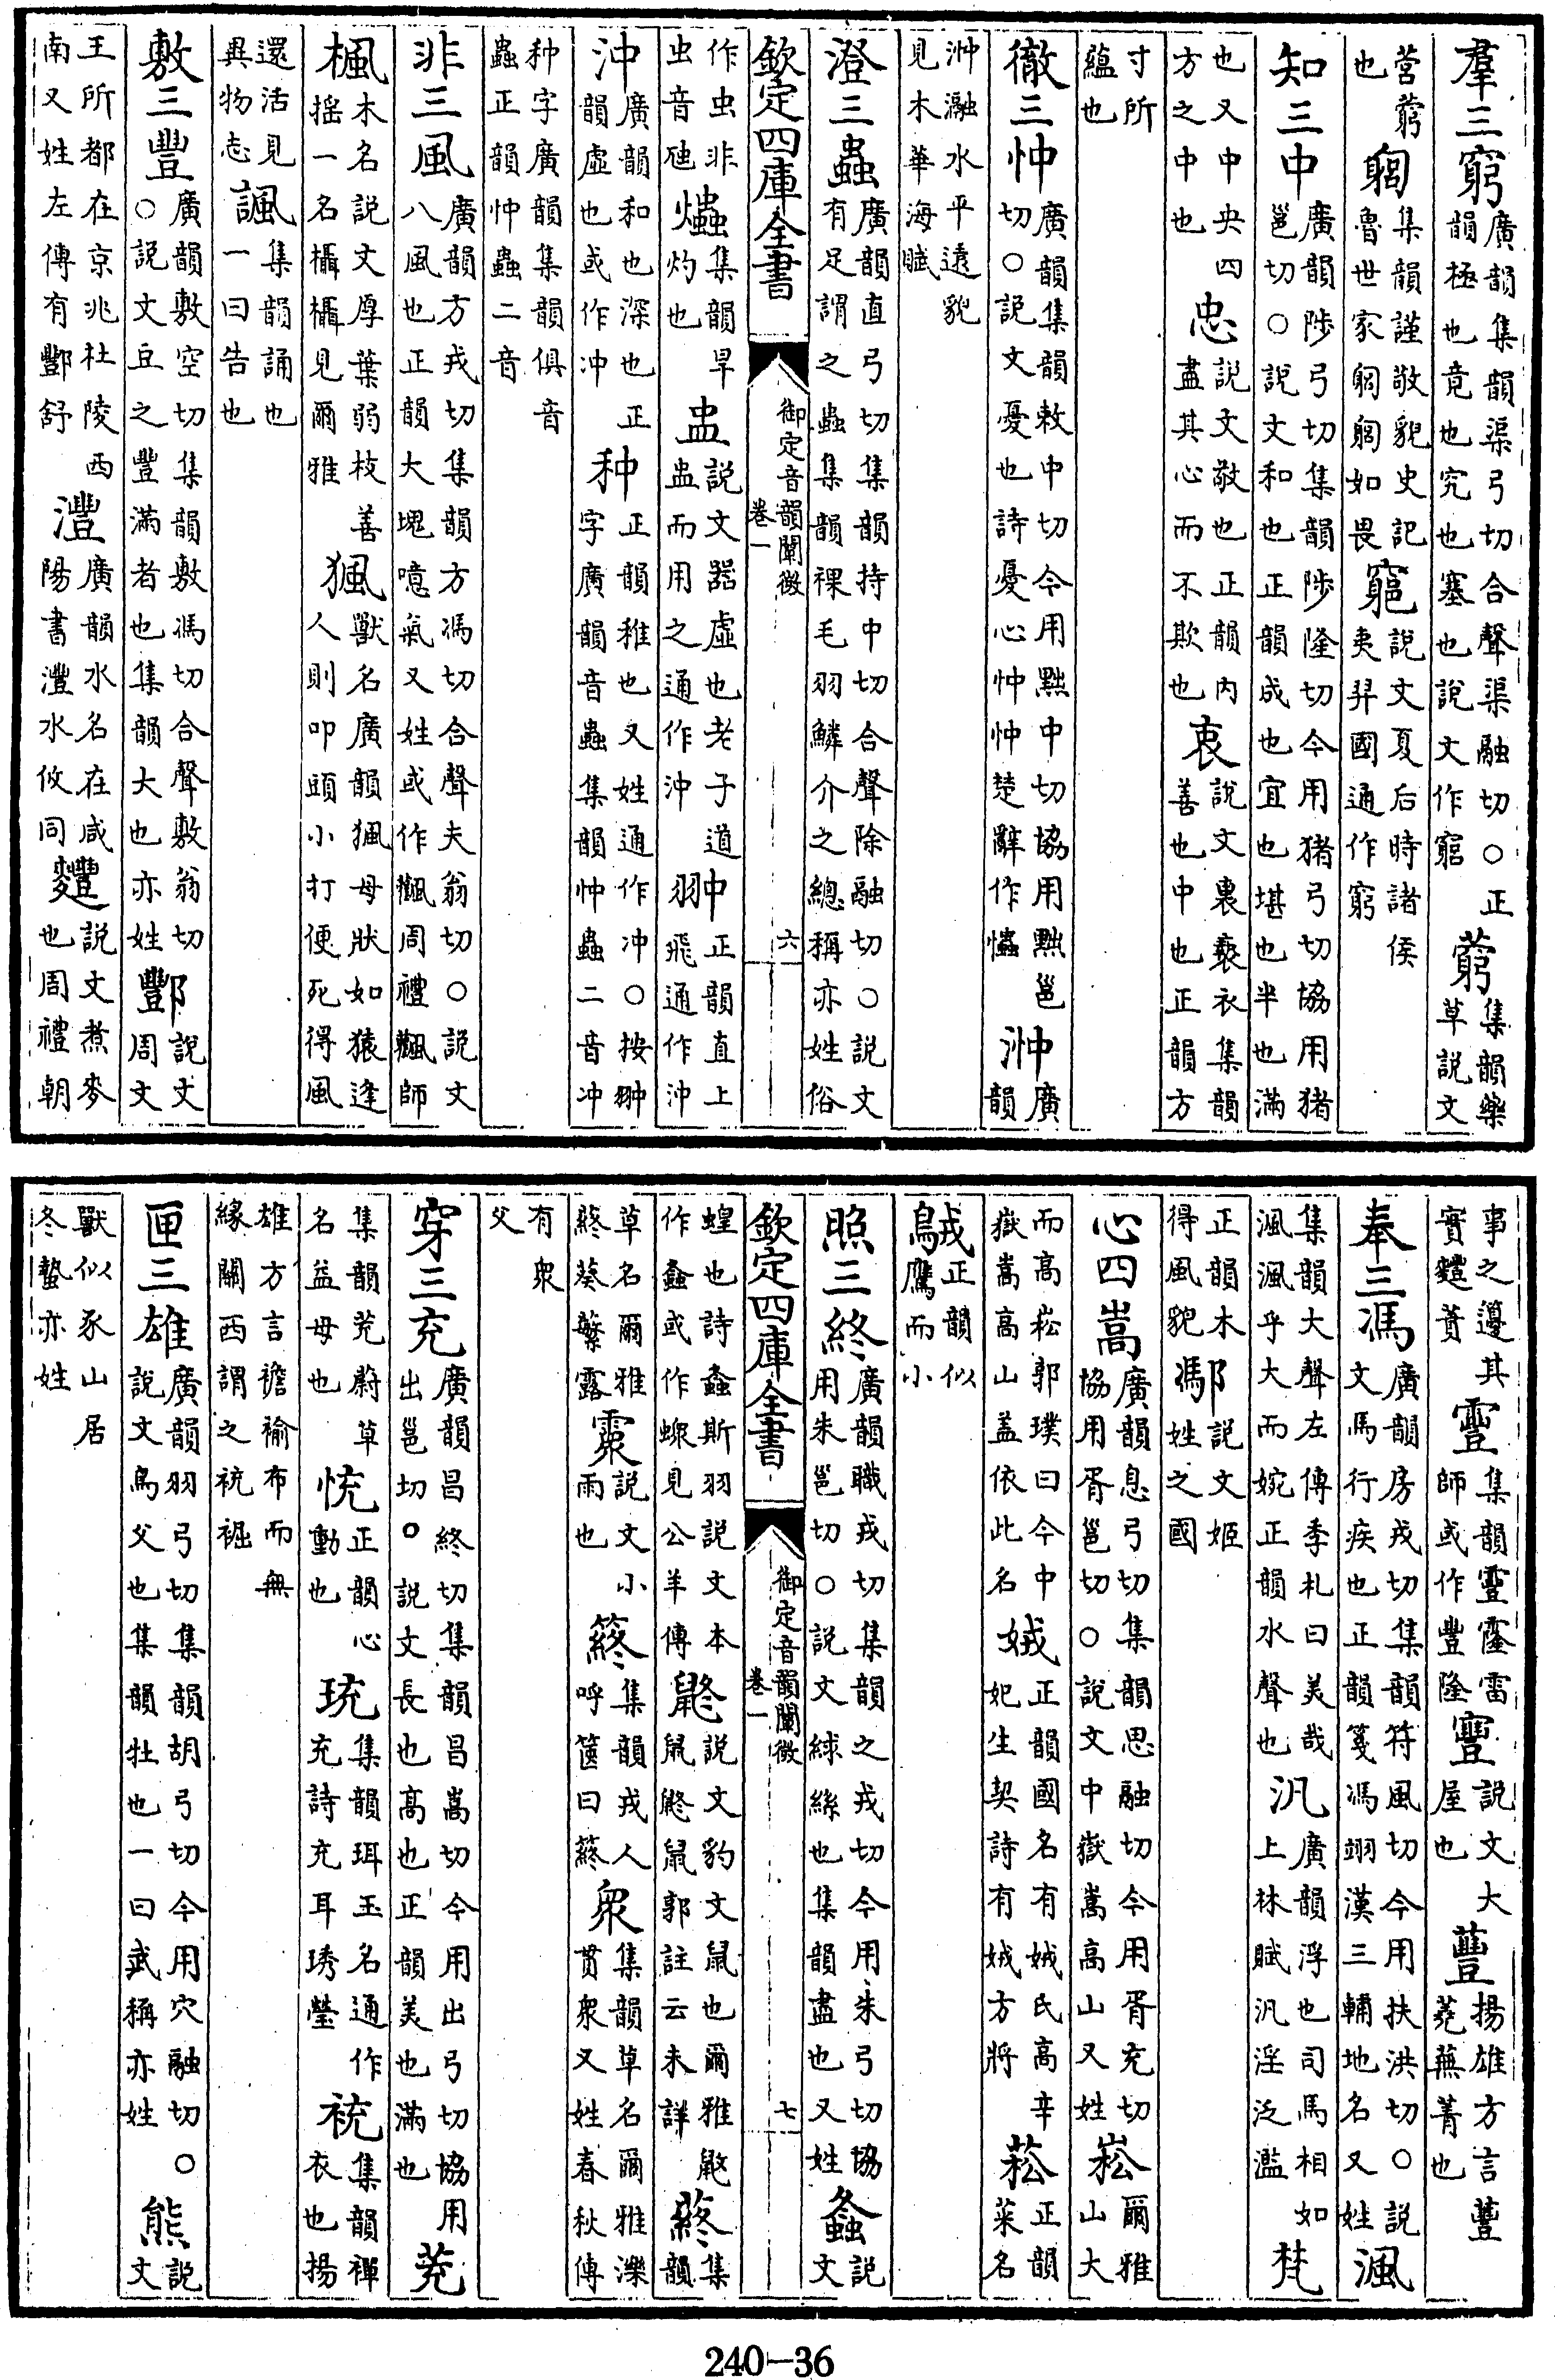 羣三窮廣韻集韻渠弓切合聲渠融切○正
韻極也竟也究也塞也說文作竆藭集韻藥
草說文
营藭
也匑集韻謹敬貌史記
魯世家匑匑如畏竆說文夏后時諸侯
夷羿國通作窮
知三中廣韻陟弓切集韻陟隆切今用猪弓切協用猪
邕切○說文和也正韻成也宜也堪也半也滿
也又中央四
方之中也忠說文敬也正韻内
盡其心而不欺也衷說文裏褻衣集韻
善也中也正韻方
寸所
蘊也
徹三忡廣韻集韻敕中切今用黜中切協用黜邕
切○說文憂也詩憂心忡忡楚辭作爞浺廣
韻
浺瀜水平遠貌
見木華海賦
澄三蟲廣韻直弓切集韻持中切合聲除融切○說文
有足謂之蟲集韻裸毛羽鱗介之總稱亦姓俗
欽定四庫全書
御定音韻闡微
卷一
六
作虫非
虫音虺爞集韻旱
灼也盅說文器虛也老子道
盅而用之通作沖翀正韻直上
飛通作沖
沖廣韻和也深也正
韻虛也或作冲种正韻稚也又姓通作冲○按翀
字廣韻音蟲集韻忡蟲二音冲
种字廣韻集韻俱音
蟲正韻忡蟲二音
非三風廣韻方戎切集韻方馮切合聲夫翁切○說文
八風也正韻大塊噫氣又姓或作飌周禮飌師
楓木名說文厚葉弱枝善
搖一名欇欇見爾雅猦獸名廣韻猦母狀如猿逢
人則叩頭小打便死得風
還活見
異物志諷集韻誦也
一曰告也
敷三豐廣韻敷空切集韻敷馮切合聲敷翁切
○說文豆之豐滿者也集韻大也亦姓酆說文
周文
王所都在京兆杜陵西
南又姓左傳有酆舒灃廣韻水名在咸
陽書灃水攸同麷說文煮麥
也周禮朝
事之籩其
實麷蕡靊集韻靊霳雷
師或作豐隆寷說文大
屋也蘴揚雄方言蘴
蕘蕪菁也
奉三馮廣韻房戎切集韻符風切今用扶洪切○說
文馬行疾也正韻箋馮翊漢三輔地名又姓渢
集韻大聲左傳季札曰美哉
渢渢乎大而婉正韻水聲也汎廣韻浮也司馬相如
上林賦汎淫泛濫梵
正韻木
得風貌䣕說文姬
姓之國
心四嵩廣韻息弓切集韻思融切今用胥充切
協用胥邕切○說文中嶽嵩高山又姓崧爾雅
山大
而高崧郭璞曰今中
嶽嵩高山蓋依此名娀正韻國名有娀氏高辛
妃生契詩有娀方將菘正韻
菜名
䳷正韻似
鷹而小
照三終廣韻職戎切集韻之戎切今用朱弓切協
用朱邕切○說文絿絲也集韻盡也又姓螽說
文
欽定四庫全書
御定音韻闡微
卷一
七
蝗也詩螽斯羽說文本
作螽或作蠑見公羊傳鼨說文豹文鼠也爾雅鼨
鼠鼨鼠郭註云未詳蔠集
韻
草名爾雅
蔠葵蘩露霥說文小
雨也䈺集韻戎人
呼簁曰䈺衆集韻草名爾雅濼
貫衆又姓春秋傳
有衆
父
穿三充廣韻昌終切集韻昌嵩切今用出弓切協用
出邕切○說文長也高也正韻美也滿也茺
集韻茺蔚草
名益母也忹正韻心
動也珫集韻珥玉名通作
充詩充耳琇瑩䘪集韻襌
衣也揚
雄方言襜褕布而無
緣關西謂之䘪裾
匣三雄廣韻羽弓切集韻胡弓切今用穴融切○
說文鳥父也集韻牡也一曰武稱亦姓熊說
文
獸似豕山居
冬蟄亦姓
240-36